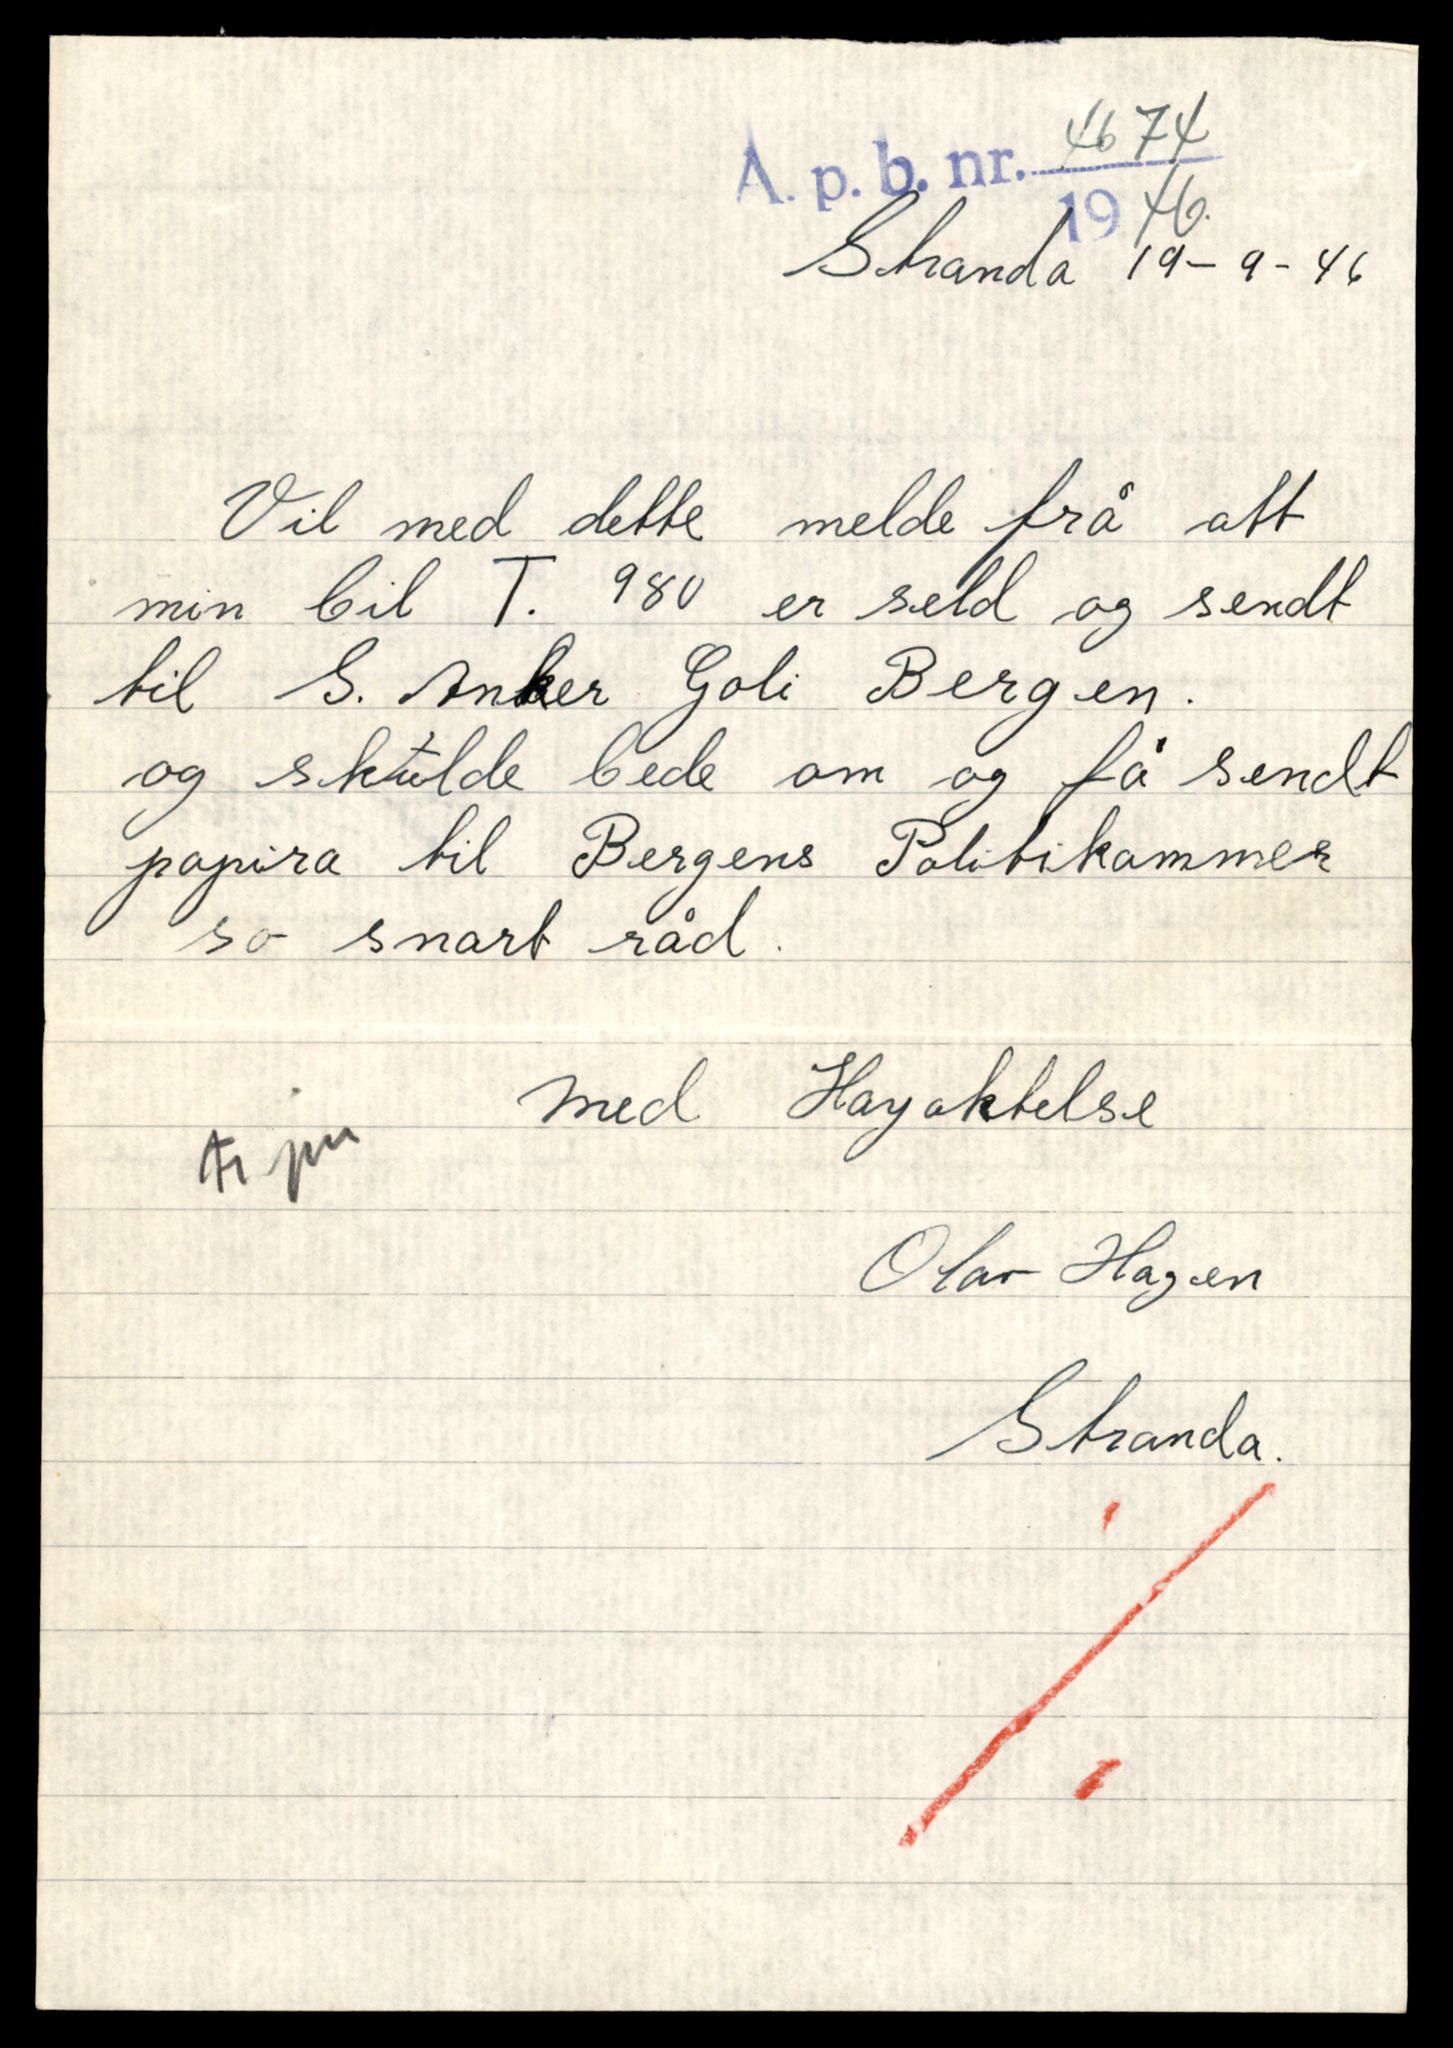 A. p. b. nr. 4674
1946.
Stranda 19-9-46
Vil med dette melde frå att
min bil T. 980 er seld og sendt
til S. Anker Goli Bergen.
og skulde bede om og få sendt
papira til Bergens Politikammer
so snart råd.
Med Hayaktelse
Olav Hagen
Stranda.